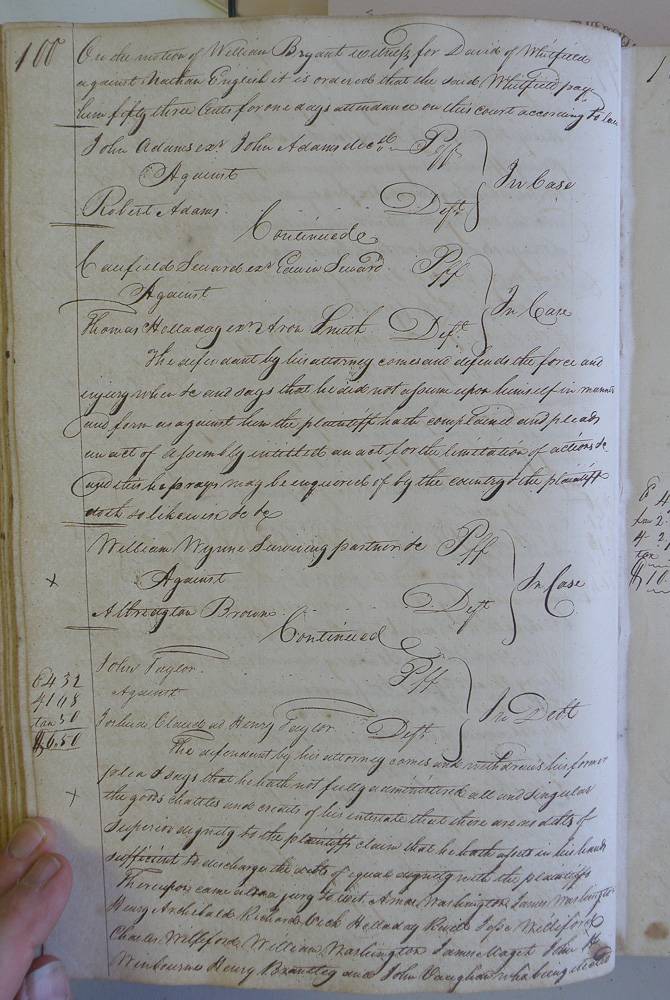 100
On the motion of William Bryant witness for David of Whitfield
against Nathan English it is ordered that the said Whitfield pay
him fifty three Cents for one days attendance on this court according to law
John Adams exr John Adams decd Plff
Against
In Case
Robert Adams Deft
Continued
Canfield Seward exr Edwin Seward Plff
Against
In Case
Thomas Holladay exr Aron Smith Deft
The defendant by his attorney comes and defends the force and
injury when &c and says that he did not assume upon himself in manner
and form as against him the plaintiff hath complained and pleads
an act of assembly intitled an act for the limitation of actions &c
and this he prays may be enquired of by the country & the plaintiff
doth so likewise &c &c
William Wynne Surviving partner &c Plff
x
Against
In Case
Albridgton Brown Deft
Continued
John Taylor Plff
Against
In Debt
Claud ad Henry Taylor Deft
C 4 32
4 1 68
tax 50
$6.50
The defendant by his attorney comes and withdraws his former
plea & says that he hath not fully administered all and singular
x
the goods chattles and credits of his intestate that there are no debts of
Superior dignity to the plaintiffs claim that he hath assets in his hands
sufficient to discharge the debts of equal dignity with the plaintiffs
Thereupon came also a jury to wit Amos Washington James Washington
Henry Archibald Richard Holladay Jesse Williford
Charles Williford William Washington James Maget John H
Winbourne Henry Brantley and John Vaughan who being elected